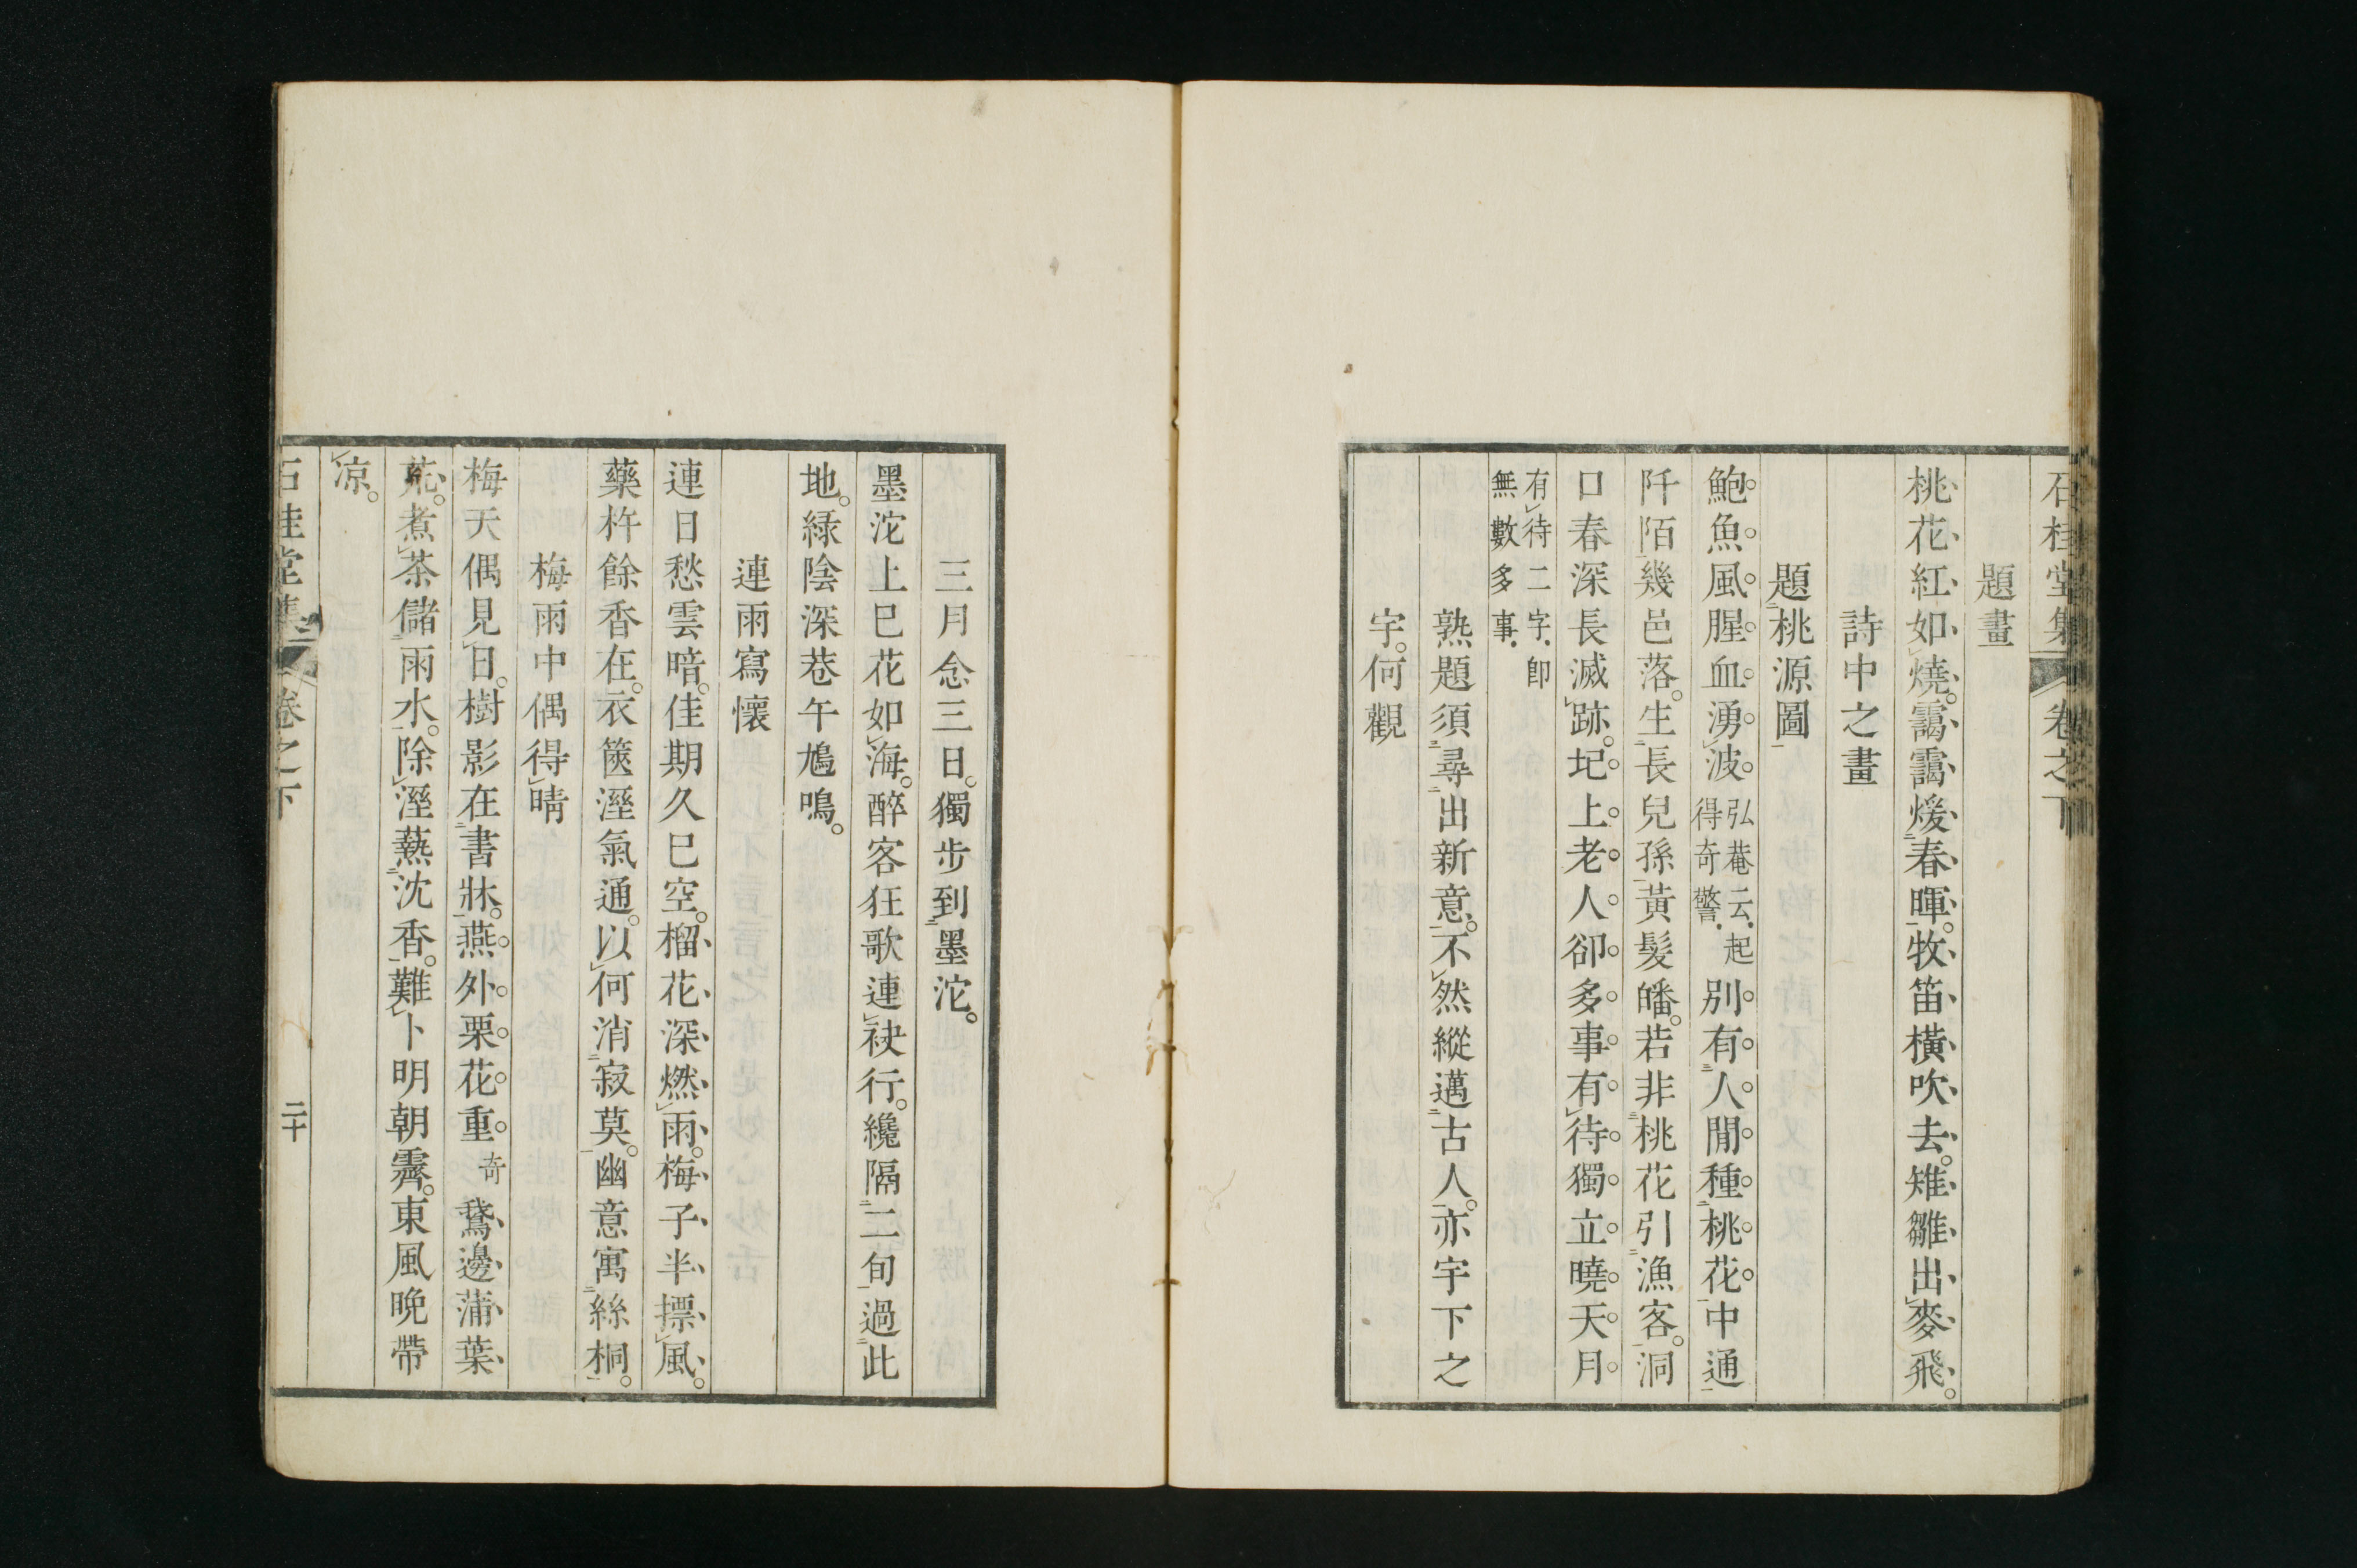 石桂堂集 卷之下
題畫
桃花紅如燒。靄靄煖春暉。牧笛橫吹去。雉雛出麥飛。
詩中之畫
題桃源圖
鮑魚風腥血湧波
弘菴云.起
得奇警.
別有人閒種桃花中通
阡陌幾邑落。生長兒孫黃髮皤。若非桃花引漁客。洞
口春深長滅跡。圯上老人卻多事。有待獨立曉天月
有待二字.卽
無數多事.
熟題須尋出新意。不然縱邁古人。亦宇下之
字。何觀
三月念三日。獨步到墨沱。
墨沱上巳花如海。醉客狂歌連袂行。纔隔二旬過此
地。綠陰深巷午鳩鳴。
連雨寫懷
連日愁雲暗。佳期久已空。榴花深燃雨。梅子半摽風。
藥杵餘香在。衣篋溼氣通。以何消寂莫。幽意寓絲桐。
梅雨中偶得晴
梅天偶見日。樹影在書牀。燕外栗花重。
奇
鵞邊蒲葉
荒。煮茶儲雨水。除溼爇沈香。難卜明朝霽。東風晩帶
凉。
石桂堂集 卷之下 二十